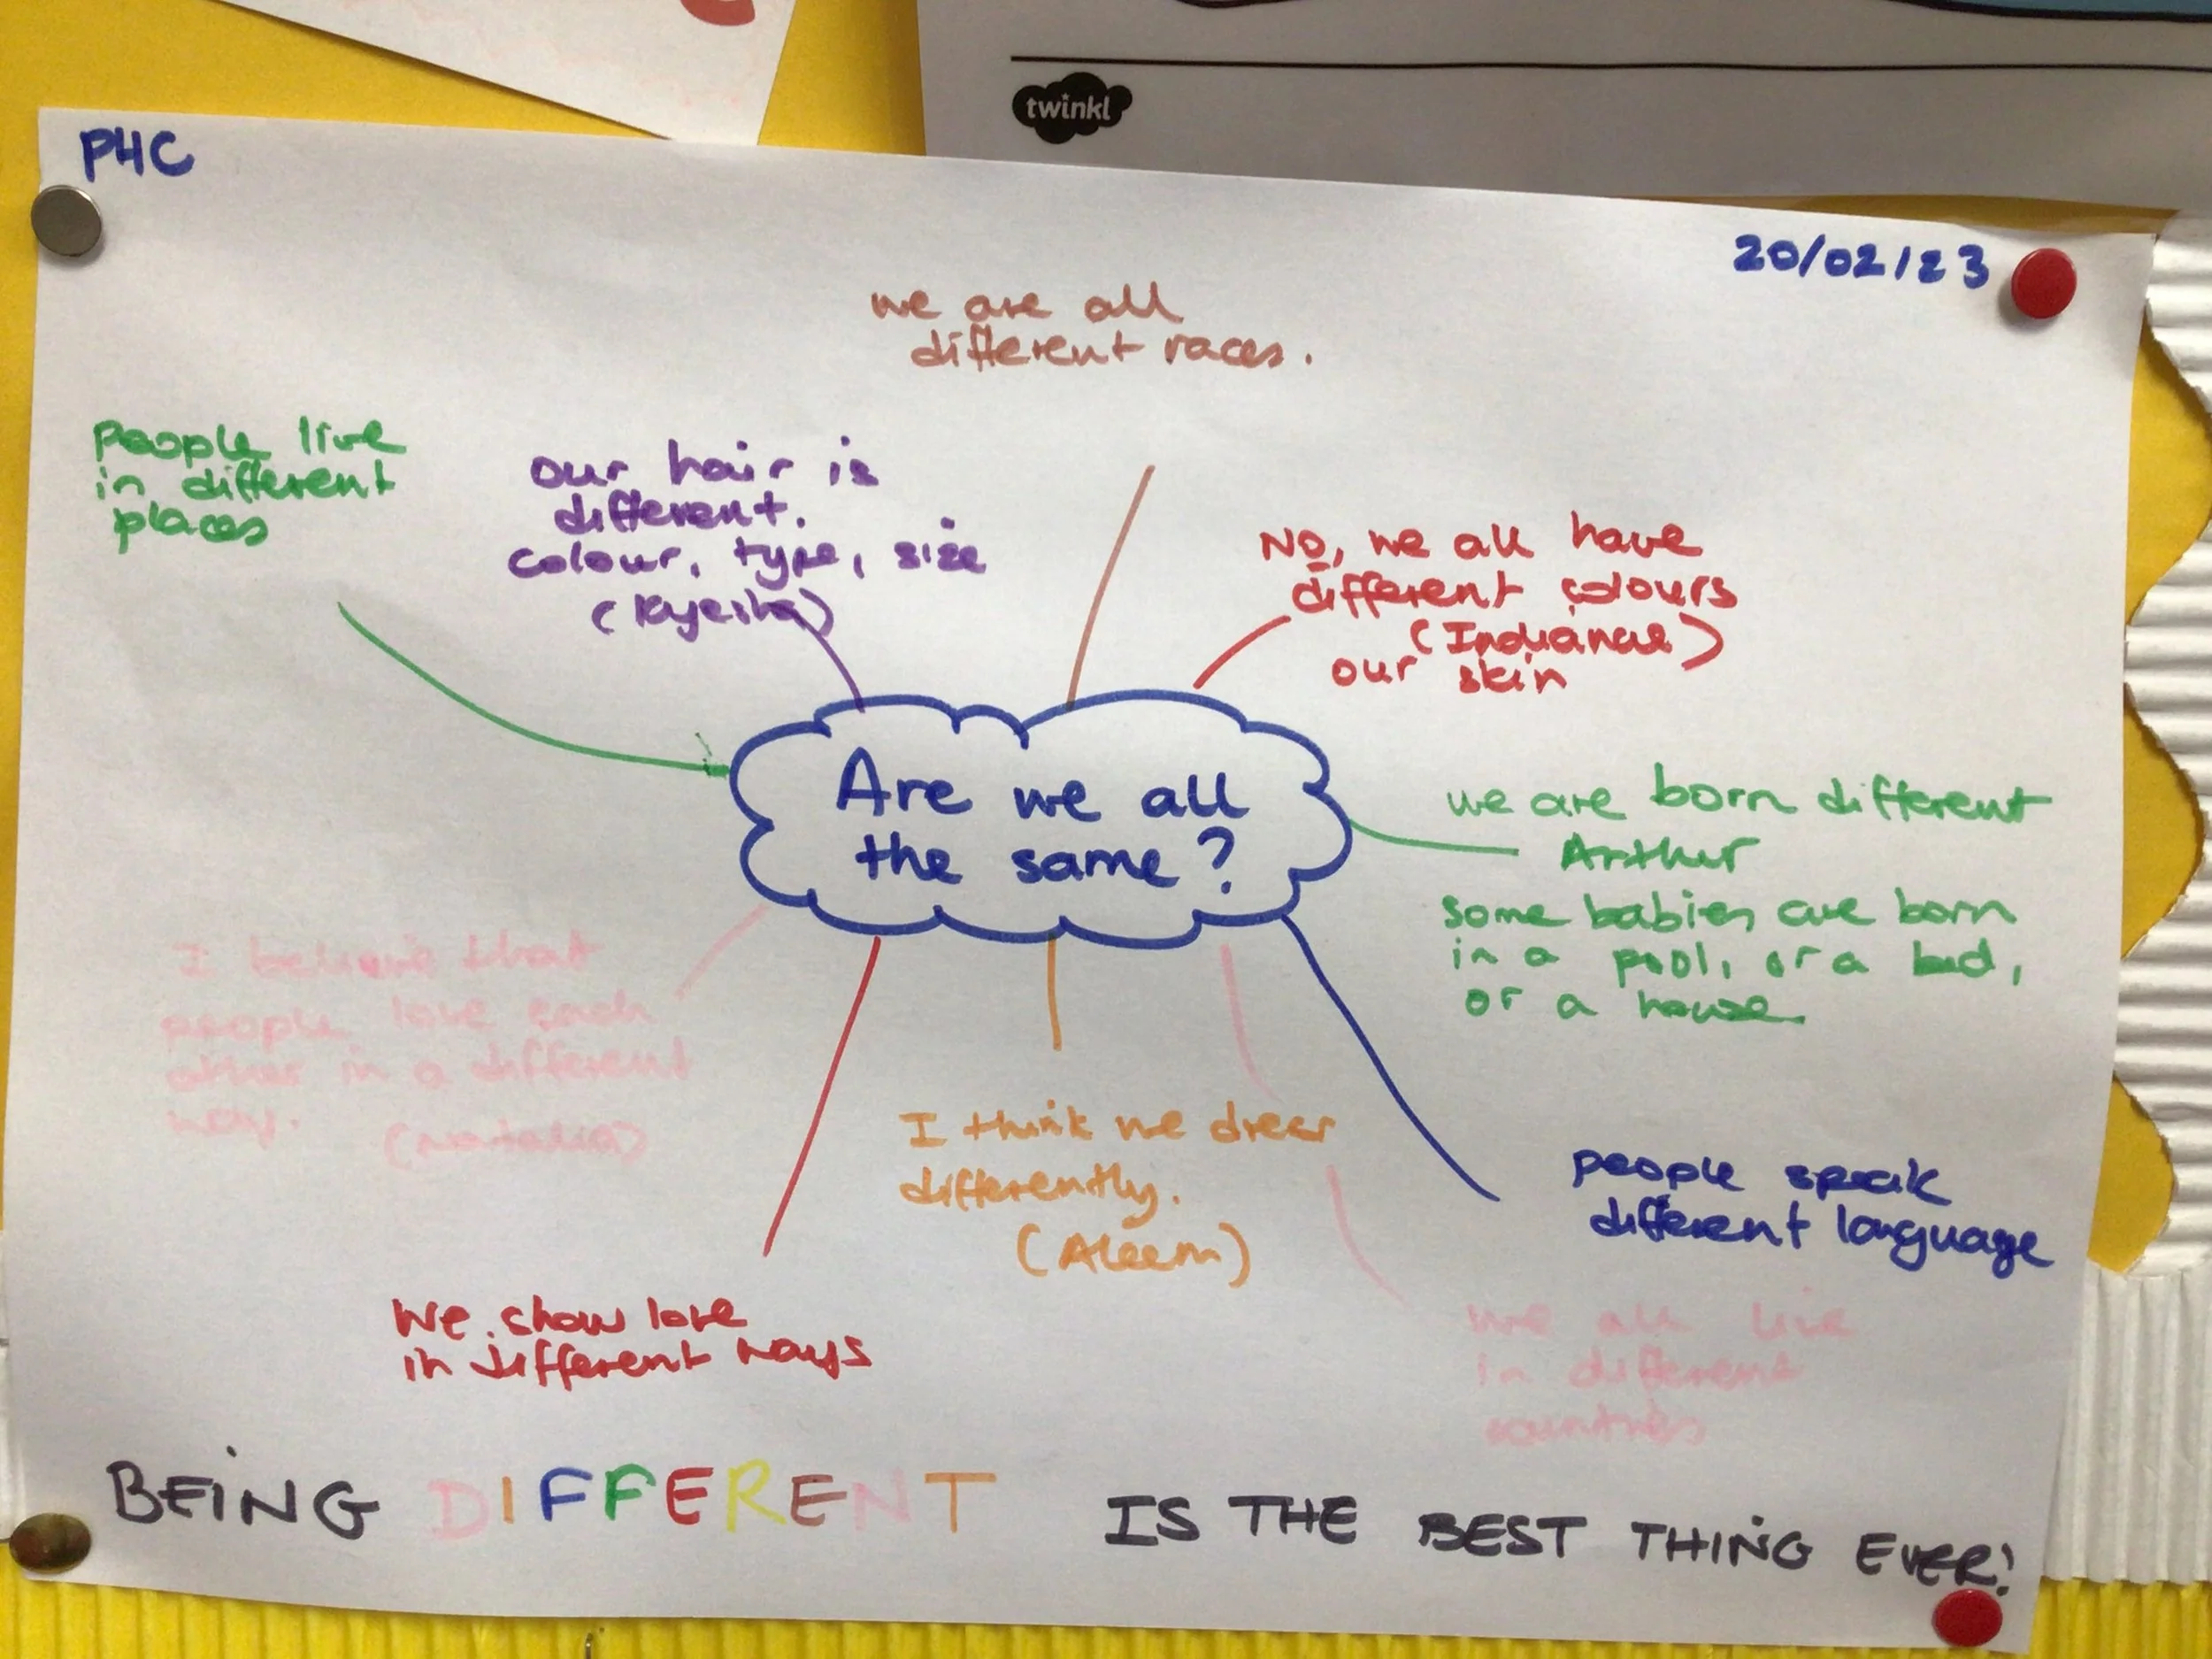 twinkl
P4C
20/02/23
we are all
different races.
people live
in different
places
our hair is
different.
colour, type, size
(Kyesha)
No, we all have
different colours
(Indianae)
our skin
Are we all
the same?
we are born different
Arthur
some babies are born
in a pool, or a bed,
or a house
I believe that
people love each
other in a different
way.
(Natalia)
I think we dress
differently.
(Aleem)
people speak
different language
We show love
in different ways
We all live
in different
countries
BEING DIFFERENT IS THE BEST THING EVER!